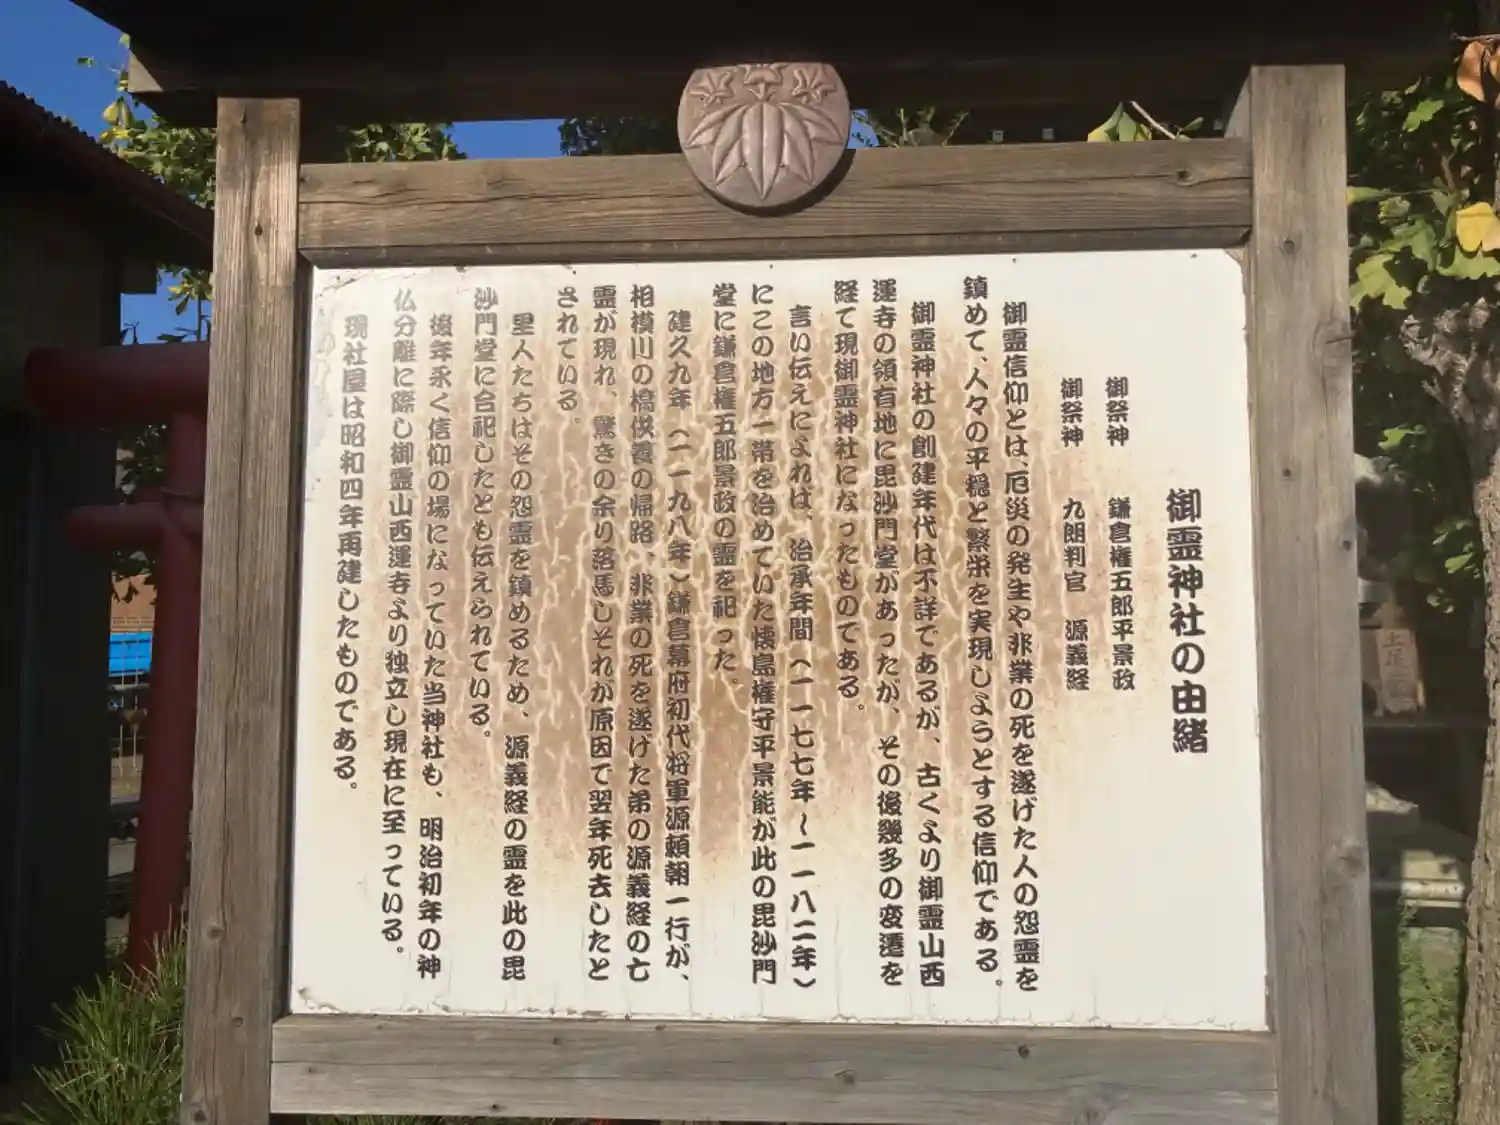 御霊神社の由緒
御祭神　鎌倉権五郎平景政
御祭神　九朗判官　源義経
御霊信仰とは、厄災の発生や非業の死を遂げた人の怨霊を
鎮めて、人々の平穏と繁栄を実現しようとする信仰である。
御霊神社の創建年代は不詳であるが、古くより御霊山西
運寺の領有地に毘沙門堂があったが、その後幾多の変遷を
経て現御霊神社になったものである。
言い伝えによれば、治承年間（一一七七年～一一八二年）
にこの地方一帯を治めていた懐島権守平景能が此の毘沙門
堂に鎌倉権五郎景政の霊を祀った。
建久九年（一一九八年）鎌倉幕府初代将軍源頼朝一行が、
相模川の橋供養の帰路、非業の死を遂げた弟の源義経の亡
霊が現れ、驚きの余り落馬しそれが原因で翌年死去したと
されている。
里人たちはその怨霊を鎮めるため、源義経の霊を此の毘
沙門堂に合祀したとも伝えられている。
後年永く信仰の場になっていた当神社も、明治初年の神
仏分離に際し御霊山西運寺より独立し現在に至っている。
現社屋は昭和四年再建したものである。